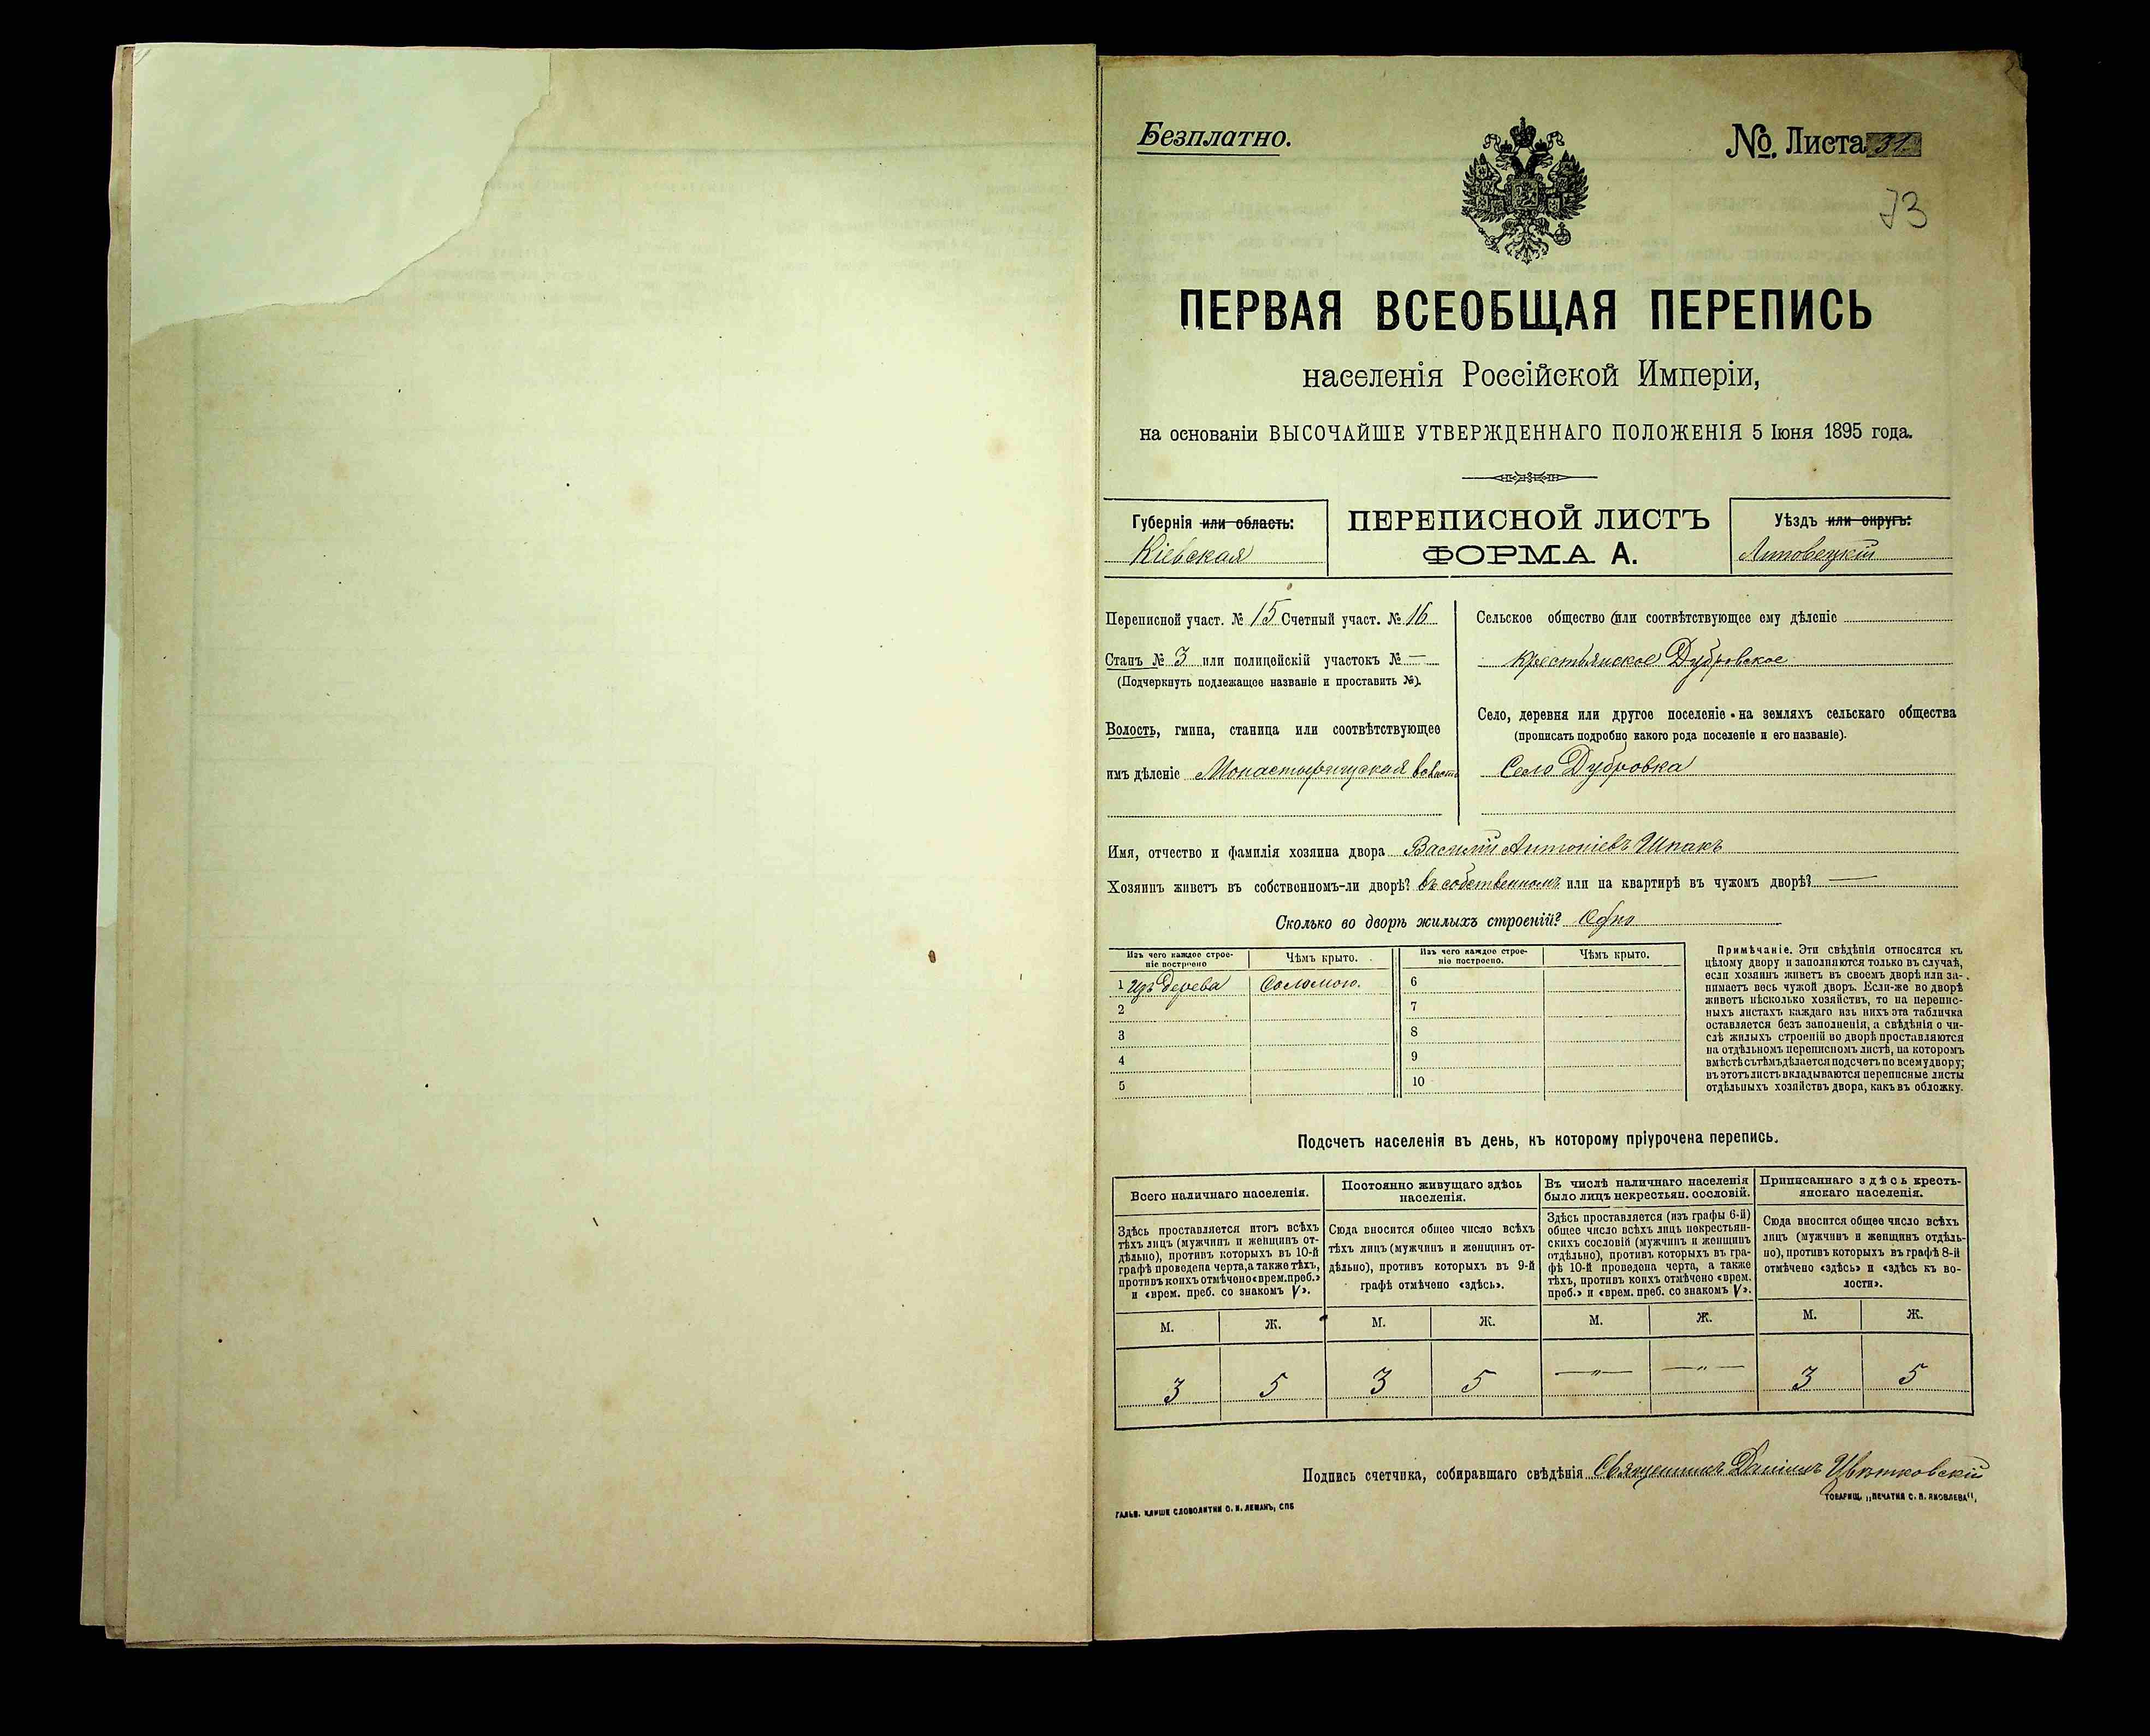 Безплатно.
№. Листа 31
73
ПЕРВАЯ ВСЕОБЩАЯ ПЕРЕПИСЬ
населенія Россійской Имперіи,
на основаніи ВЫСОЧАЙШЕ УТВЕРЖДЕННАГО ПОЛОЖЕНІЯ 5 Іюня 1895 года.
Губернія или область:
Кіевская
ПЕРЕПИСНОЙ ЛИСТЪ
ФОРМА А.
Уѣздъ или округъ:
Липовецкій
Переписной участ. № 15 Счетный участ. № 16
Станъ № 3 или полицейскій участокъ № —
(Подчеркнуть подлежащее названіе и проставить №).
Волость, гмина, станица или соотвѣтствующее
имъ дѣленіе Монастырищская волость
Сельское общество (или соотвѣтствующее ему дѣленіе
крестьянское Дубровское
Село, деревня или другое поселеніе на земляхъ сельскаго общества
(прописать подробно какого рода поселеніе и его названіе).
Село Дубровка
Имя, отчество и фамилія хозяина двора Василій Антоніевъ Шпакъ
Хозяинъ живетъ въ собственномъ-ли дворѣ? въ собственномъ или на квартирѣ въ чужомъ дворѣ? —
Сколько во дворѣ жилыхъ строеній? Одно
Изъ чего каждое строе-
ніе построено
Чѣмъ крыто.
Изъ чего каждое строе-
ніе построено.
Чѣмъ крыто.
1 Изъ дерева Соломою.
2
3
4
5
6
7
8
9
10
Примѣчаніе. Эти свѣдѣнія относятся къ
цѣлому двору и заполняются только въ случаѣ,
если хозяинъ живетъ въ своемъ дворѣ или за-
нимаетъ весь чужой дворъ. Если-же во дворѣ
живетъ нѣсколько хозяйствъ, то на перепис-
ныхъ листахъ каждаго изъ нихъ эта табличка
оставляется безъ заполненія, а свѣдѣнія о чи-
слѣ жилыхъ строеній во дворѣ проставляются
на отдѣльномъ переписномъ листѣ, на которомъ
вмѣстѣ съ тѣмъ дѣлается подсчетъ по всему двору;
въ этотъ листъ вкладываются переписные листы
отдѣльныхъ хозяйствъ двора, какъ въ обложку.
Подсчетъ населенія въ день, къ которому пріурочена перепись.
Всего наличнаго населенія.
Здѣсь проставляется итогъ всѣхъ
тѣхъ лицъ (мужчинъ и женщинъ от-
дѣльно), противъ которыхъ въ 10-й
графѣ проведена черта, а также тѣхъ,
противъ коихъ отмѣчено «врем. преб.»
и «врем. преб. со знакомъ V».
Постоянно живущаго здѣсь
населенія.
Сюда вносится общее число всѣхъ
тѣхъ лицъ (мужчинъ и женщинъ от-
дѣльно), противъ которыхъ въ 9-й
графѣ отмѣчено «здѣсь».
Въ числѣ наличнаго населенія
было лицъ некрестьян. сословій.
Здѣсь проставляется (изъ графы 6-й)
общее число всѣхъ лицъ некрестьян-
скихъ сословій (мужчинъ и женщинъ
отдѣльно), противъ которыхъ въ гра-
фѣ 10-й проведена черта, а также
тѣхъ, противъ коихъ отмѣчено «врем.
преб.» и «врем. преб. со знакомъ V».
Приписаннаго здѣсь кресть-
янскаго населенія.
Сюда вносится общее число всѣхъ
лицъ (мужчинъ и женщинъ отдѣль-
но), противъ которыхъ въ графѣ 8-й
отмѣчено «здѣсь» и «здѣсь къ во-
лости».
М. Ж. М. Ж. М. Ж. М. Ж.
3 5 3 5 —"— —"— 3 5
Подпись счетчика, собиравшаго свѣдѣнія Священникъ Даніилъ Цвѣтковскій
ГАЛЬВ. КЛИШЕ СЛОВОЛИТНИ О. И. ЛЕМАНЪ, СПБ
ТОВАРИЩ. „ПЕЧАТНЯ С. П. ЯКОВЛЕВА".